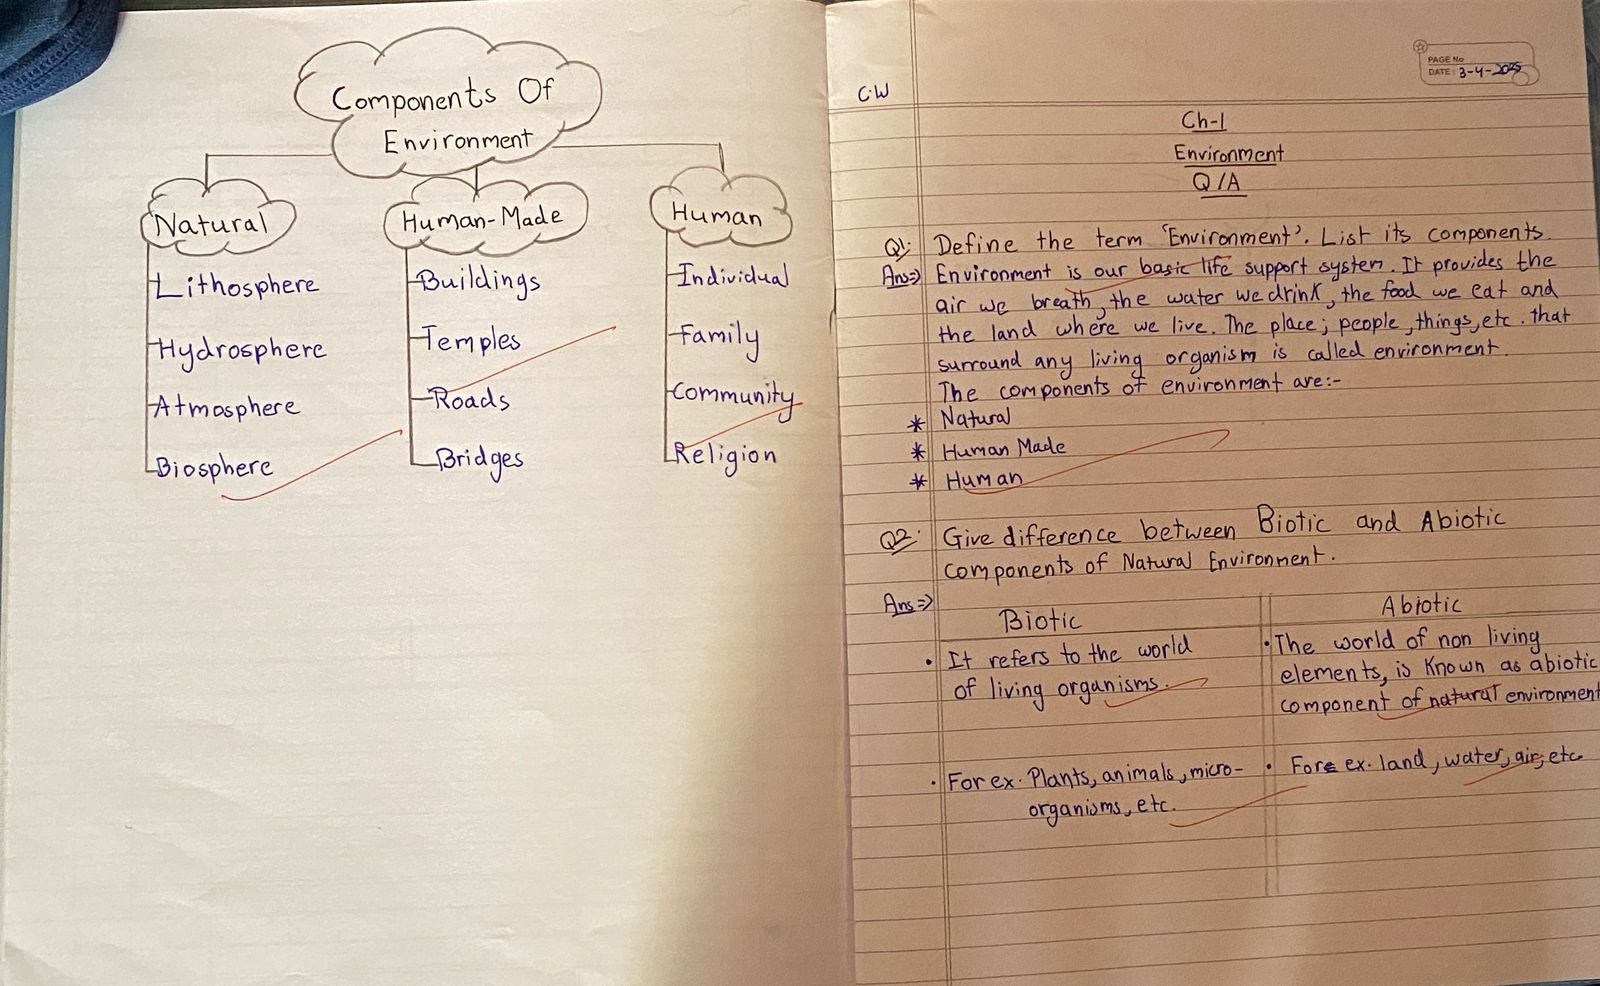 Components Of
Environment
Natural
Lithosphere
Hydrosphere
Atmosphere
Biosphere
Human-Made
Buildings
Temples
Roads
Bridges
Human
Individual
Family
Community
Religion
PAGE No
DATE: 3-4-2025
C.W
Ch-1
Environment
Q/A
Q1. Define the term 'Environment'. List its components.
Ans=> Environment is our basic life support system. It provides the
air we breath, the water we drink, the food we eat and
the land where we live. The place, people, things, etc. that
surround any living organism is called environment.
The components of environment are:-
* Natural
* Human Made
* Human
Q2. Give difference between Biotic and Abiotic
components of Natural Environment.
Ans=>
Biotic
• It refers to the world
of living organisms.
• For ex. Plants, animals, micro-
organisms, etc.
Abiotic
• The world of non living
elements, is known as abiotic
component of natural environment
• Fore ex. land, water, air, etc